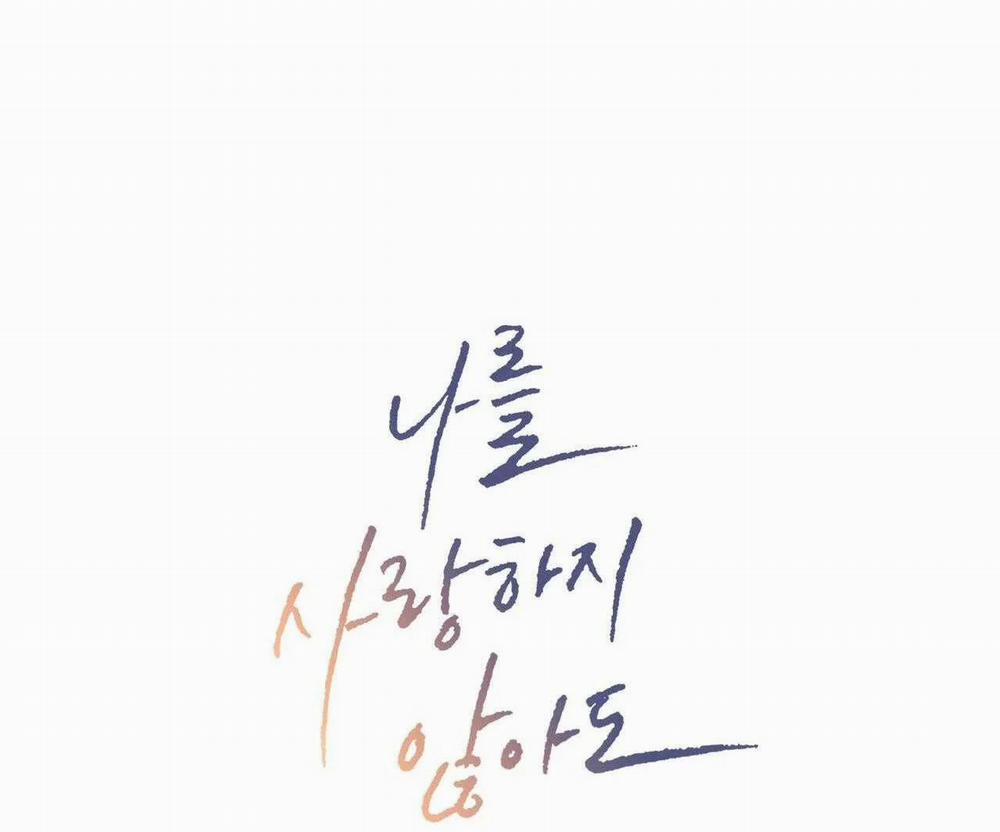 나를
사랑하지
않아도